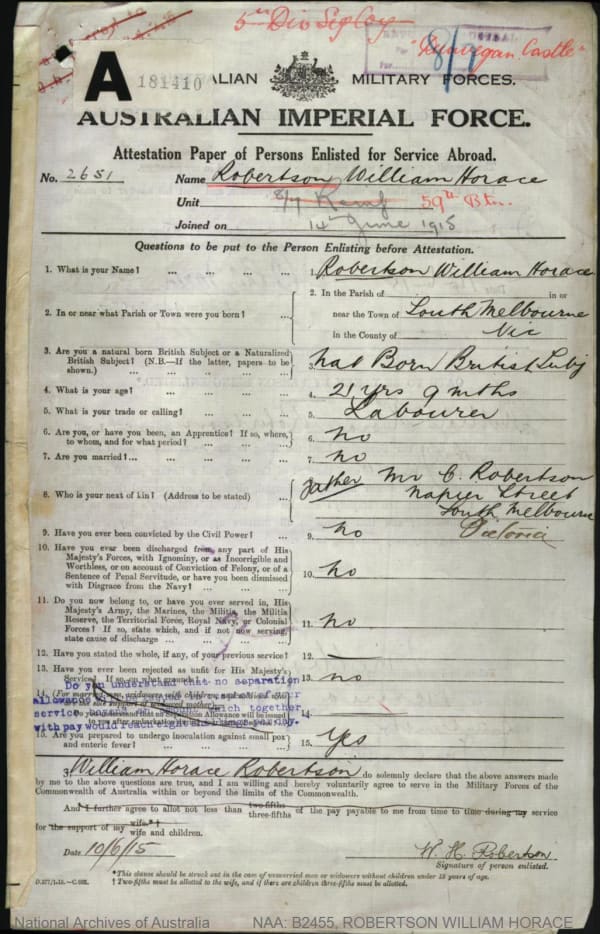 5th Div Sig Coy
"Dunvegan Castle"
8/7
A
181410
ALIAN MILITARY FORCES.
AUSTRALIAN IMPERIAL FORCE.
Attestation Paper of Persons Enlisted for Service Abroad.
No. 2651 Name Robertson William Horace
Unit 8/7 Reinf 59th Btn.
Joined on 14 June 1915
Questions to be put to the Person Enlisting before Attestation.
1. What is your Name? ... ... ... ... 1. Robertson William Horace
2. In or near what Parish or Town were you born? ...
2. In the Parish of in or
near the Town of South Melbourne
in the County of Vic
3. Are you a natural born British Subject or a Naturalized
British Subject? (N.B.—If the latter, papers to be
shown.) ... ... ... ... ...
3. Nat Born British Subj
4. What is your age? ... ... ... ... 4. 21 yrs 9 mths
5. What is your trade or calling? ... ... ... 5. Labourer
6. Are you, or have you been, an Apprentice? If so, where,
to whom, and for what period? ... ... ...
6. no
7. Are you married? ... ... ... ... 7. no
8. Who is your next of kin? (Address to be stated) ...
Father Mr C. Robertson
Napier Street
South Melbourne
Victoria
9. Have you ever been convicted by the Civil Power? ... 9. no
10. Have you ever been discharged from any part of His
Majesty's Forces, with Ignominy, or as Incorrigible and
Worthless, or on account of Conviction of Felony, or of a
Sentence of Penal Servitude, or have you been dismissed
with Disgrace from the Navy? ... ... ...
10. no
11. Do you now belong to, or have you ever served in, His
Majesty's Army, the Marines, the Militia, the Militia
Reserve, the Territorial Force, Royal Navy, or Colonial
Forces? If so, state which, and if not now serving,
state cause of discharge ... ... ...
11. no
12. Have you stated the whole, if any, of your previous service? 12. —
13. Have you ever been rejected as unfit for His Majesty's
Service? If so, on what grounds?
13. no
Do you understand that no separation
14. (For married men, widowers with children, and
sole support of widowed mother)
Do you understand that no Separation Allowance will be issued
service
which together
with pay would reach
per day.
14. —
15. Are you prepared to undergo inoculation against small pox
and enteric fever? ... ... ... ...
15. Yes
I, William Horace Robertson do solemnly declare that the above answers made
by me to the above questions are true, and I am willing and hereby voluntarily agree to serve in the Military Forces of the
Commonwealth of Australia within or beyond the limits of the Commonwealth.
And I further agree to allot not less than two-fifths three-fifths of the pay payable to me from time to time during my service
for the support of my wife*† wife and children.
Date 10/6/15 W. H. Robertson.
Signature of person enlisted.
* This clause should be struck out in the case of unmarried men or widowers without children under 18 years of age.
† Two-fifths must be allotted to the wife, and if there are children three-fifths must be allotted.
National Archives of Australia NAA: B2455, ROBERTSON WILLIAM HORACE